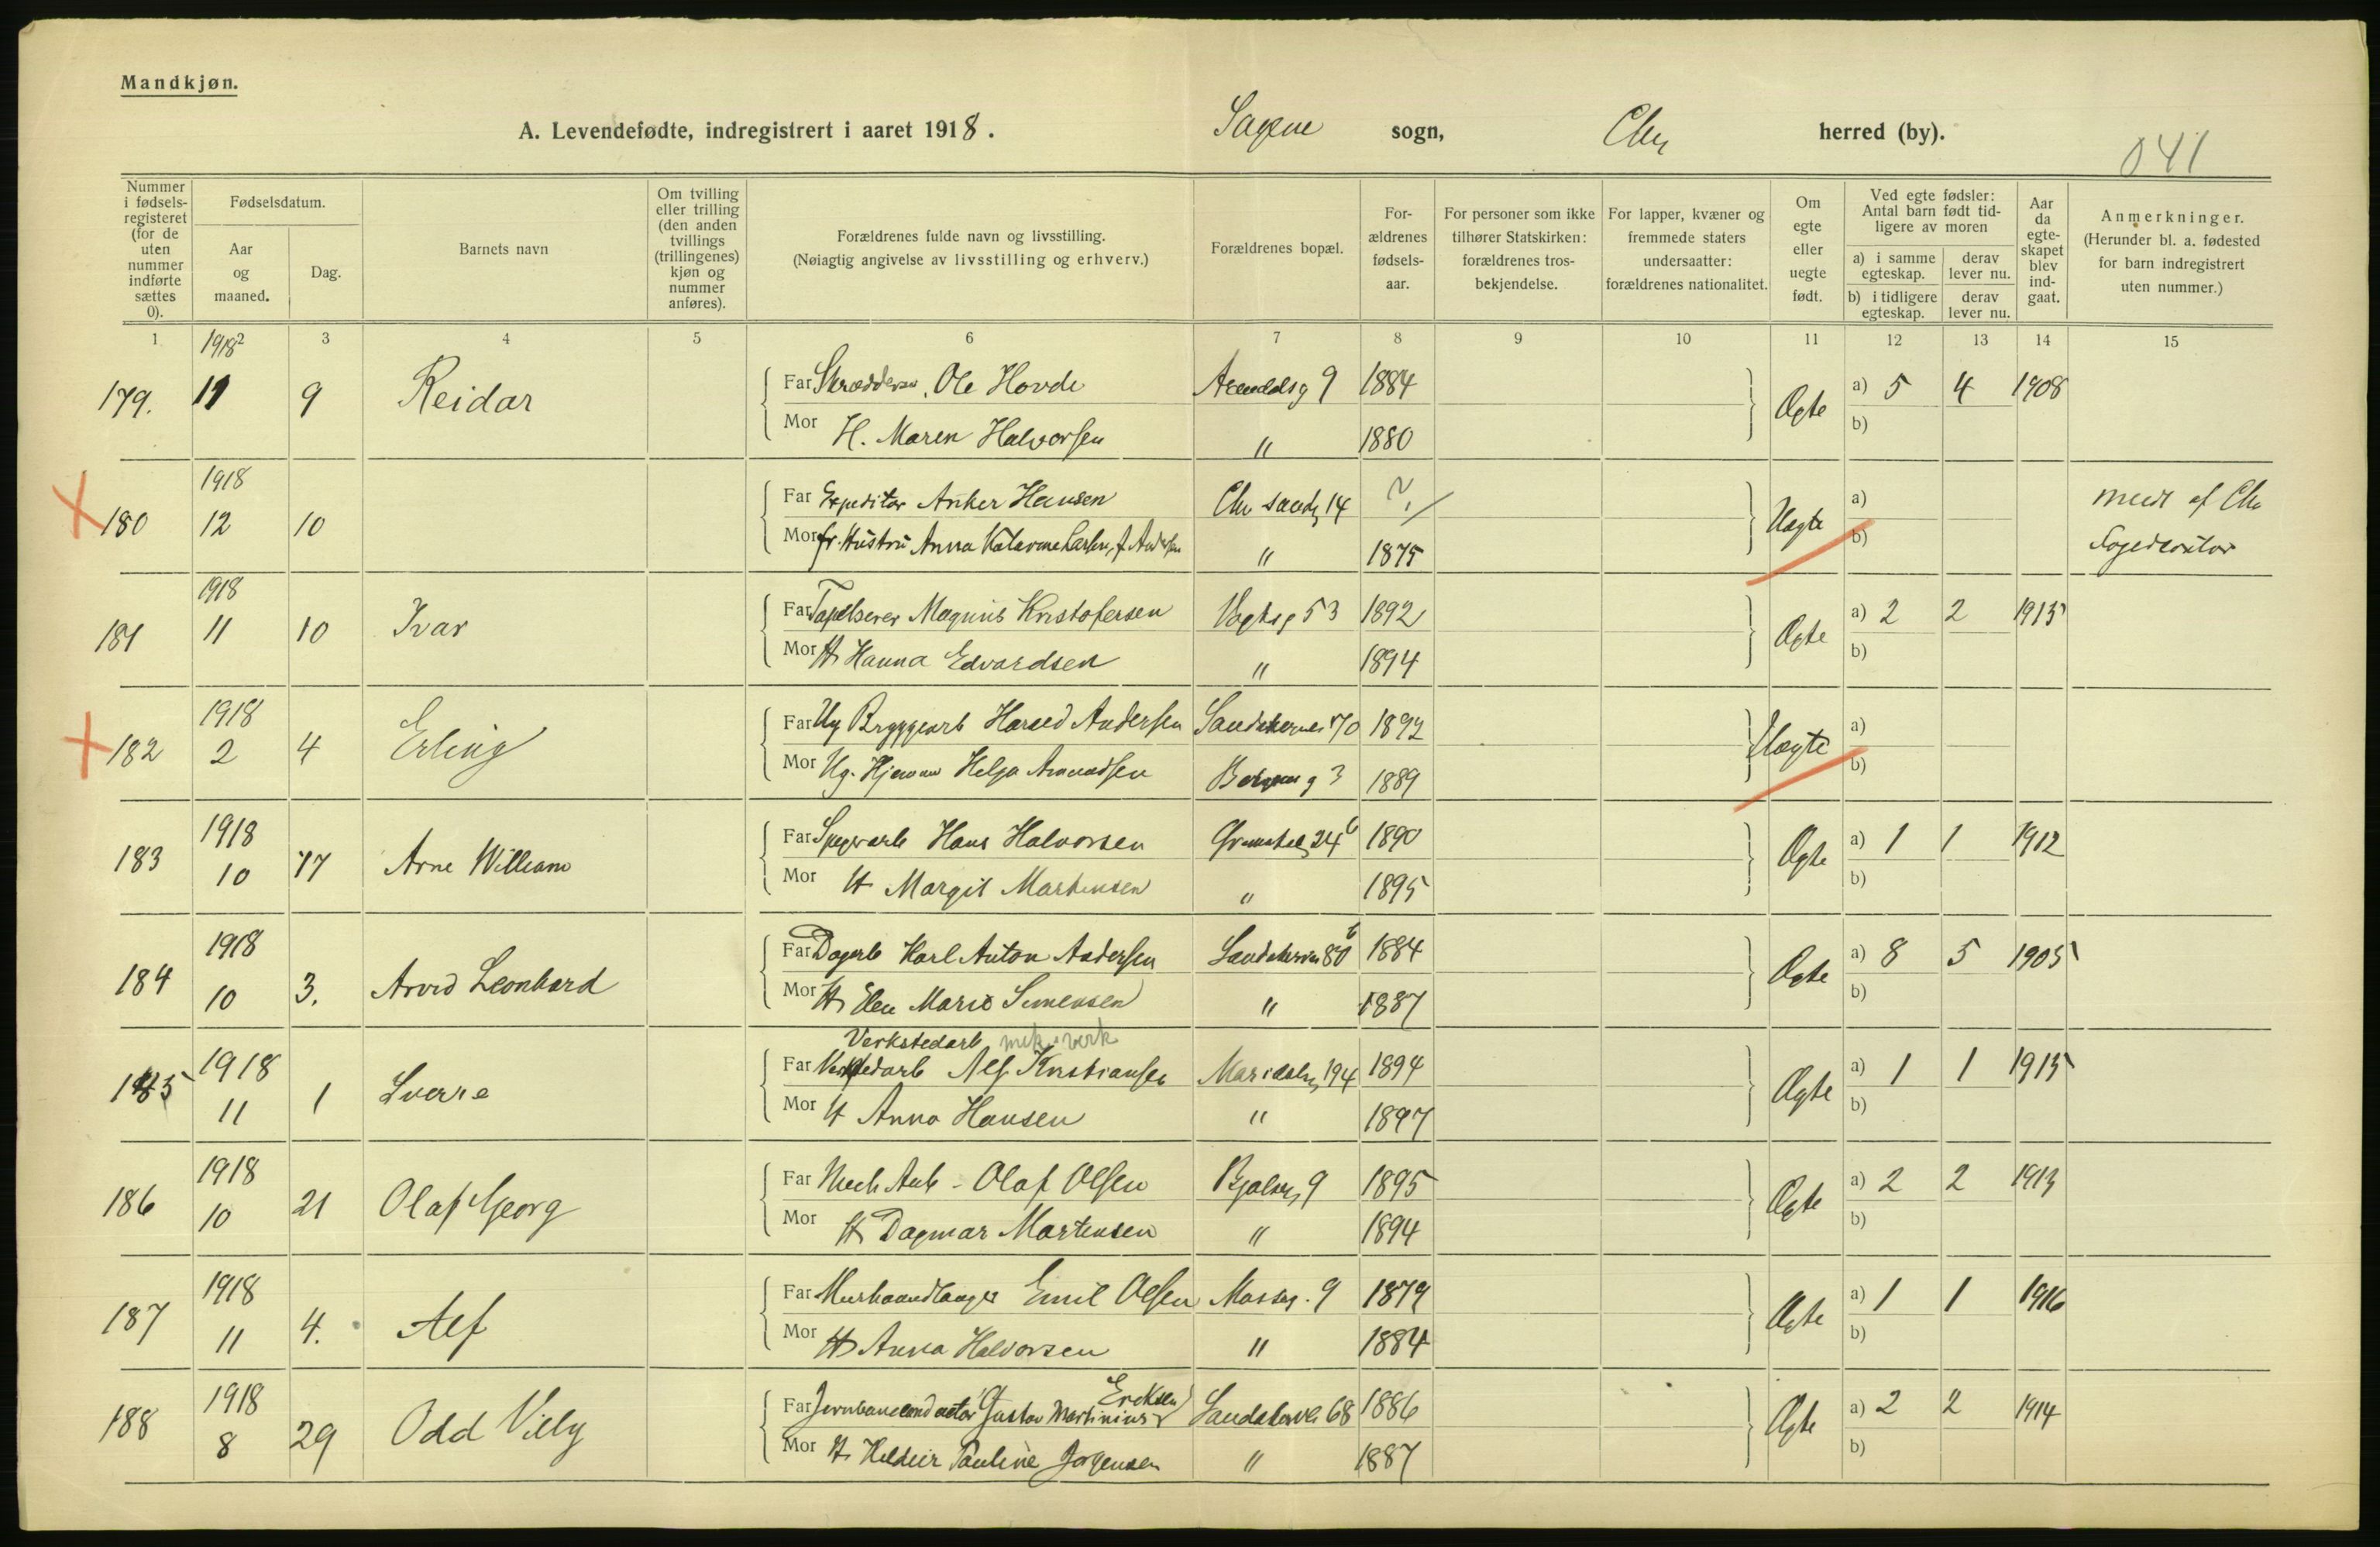 Mandkjøn.
A. Levendefødte, indregistrert i aaret 1918. Sagene sogn, Chr herred (by).
041
Nummer i fødsels-registeret (for de uten nummer indførte sættes 0).
Fødselsdatum.
Aar og maaned.
Dag.
Barnets navn
Om tvilling eller trilling (den anden tvillings (trillingenes) kjøn og nummer anføres).
Forældrenes fulde navn og livsstilling.
(Nøiagtig angivelse av livsstilling og erhverv.)
Forældrenes bopæl.
For-ældrenes fødsels-aar.
For personer som ikke tilhører Statskirken: forældrenes tros-bekjendelse.
For lapper, kvæner og fremmede staters undersaatter: forældrenes nationalitet.
Om egte eller uegte født.
Ved egte fødsler: Antal barn født tid-ligere av moren
a) i samme egteskap.
derav lever nu.
b) i tidligere egteskap.
derav lever nu.
Aar da egte-skapet blev ind-gaat.
Anmerkninger.
(Herunder bl. a. fødested for barn indregistrert uten nummer.)
1 2 3 4 5 6 7 8 9 10 11 12 13 14 15
179. 1918 11 9 Reidar Far Ole Hovde 9 1884 Ægte a) 5 4 1908
Mor H. Maren Halvorsen " 1880 b)
180 1918 12 10 Far Expeditør Anker Hansen Chr sandg 14 ? Uægte a) medt af Chr
Mor fr. Hustru Anna Larsen, f. Andersen " 1875 b)
181 1918 11 10 Ivar Far Tapetserer Magnus Kristofersen Vogtsg 53 1892 Ægte a) 2 2 1915
Mor H Hanna Edvardsen " 1894 b)
182 1918 2 4 Erling Far Ug Bryggearb Harald Andersen 70 1892 Uægte a)
Mor Ug. Helga Amundsen 3 1889 b)
183 1918 10 17 Arne William Far Hans Halvorsen 24 b 1890 Ægte a) 1 1 1912
Mor H Margit Martinsen " 1895 b)
184 1918 10 3. Arvid Leonhard Far Dagarb Karl Anton Andersen 80 b 1884 Ægte a) 8 5 1905
Mor H Elen Marie Simensen " 1887 b)
Verkstedarb mek. verk
185 1918 11 1 Sverre Far Alf Kristiansen Maridalsg 194 1894 Ægte a) 1 1 1915
Mor H Anna Hansen " 1897 b)
186 1918 10 21 Olaf Georg Far Mech Arb - Olaf Olsen Bjølseng 9 1895 Ægte a) 2 2 1913
Mor H Dagmar Martensen " 1894 b)
187 1918 11 4. Alf Far Murhaandlanger Emil Olsen Mosseg. 9 1879 Ægte a) 1 1 1916
Mor H Anna Halvorsen " 1884 b)
188 1918 8 29 Odd Villy Far Jernbaneconductør Gustav Martinius Eriksen 68 1886 Ægte a) 2 2 1914
Mor H Pauline Jørgensen " 1887 b)